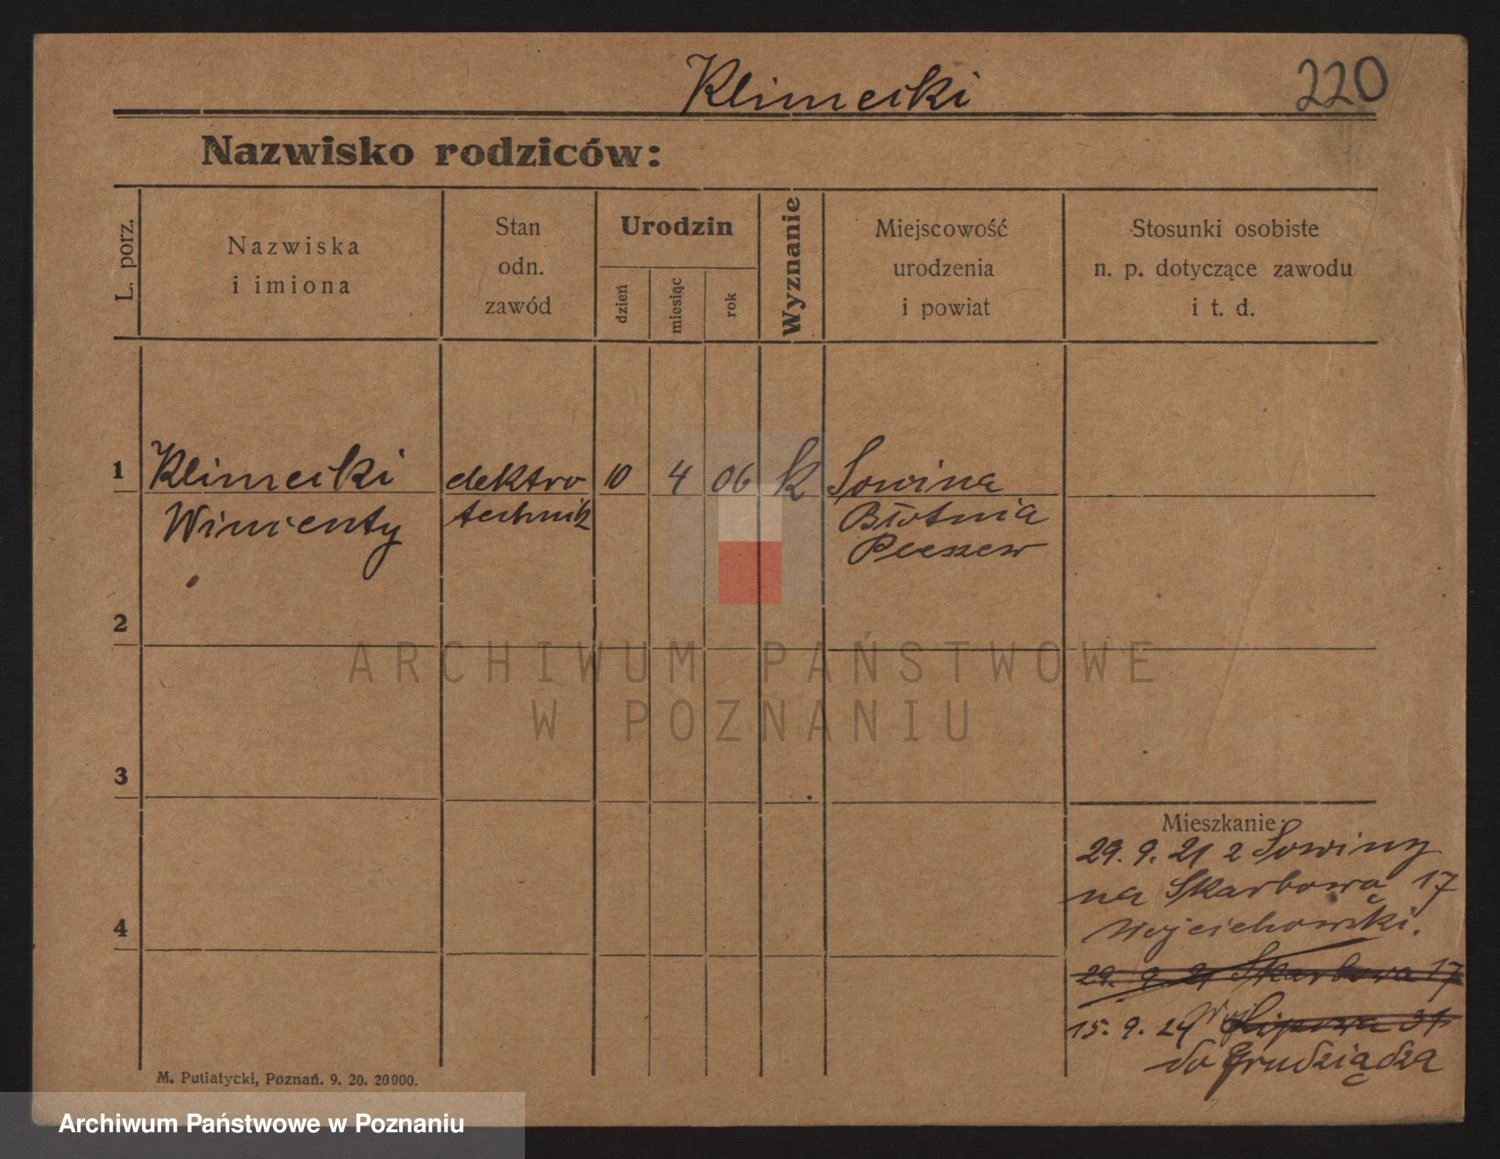 Klimecki
220
Nazwisko rodziców:
L. porz.
Nazwiska
i imiona
Stan
odn.
zawód
Urodzin
dzień
miesiąc
rok
Wyznanie
Miejscowość
urodzenia
i powiat
Stosunki osobiste
n. p. dotyczące zawodu
i t. d.
1
Klimecki
Wincenty
elektro
technik
10
4
06
k
Sowina
Błotnia
Pleszew
2
3
4
Mieszkanie:
29. 9. 21 z Sowiny
na Skarbową 17
Wojciechowski.
29. 9. 21 Skarbowa 17
15. 9. 24 Lipowa 31
do Grudziądza
M. Putiatycki, Poznań. 9. 20. 20000.
ARCHIWUM PAŃSTWOWE
W POZNANIU
Archiwum Państwowe w Poznaniu